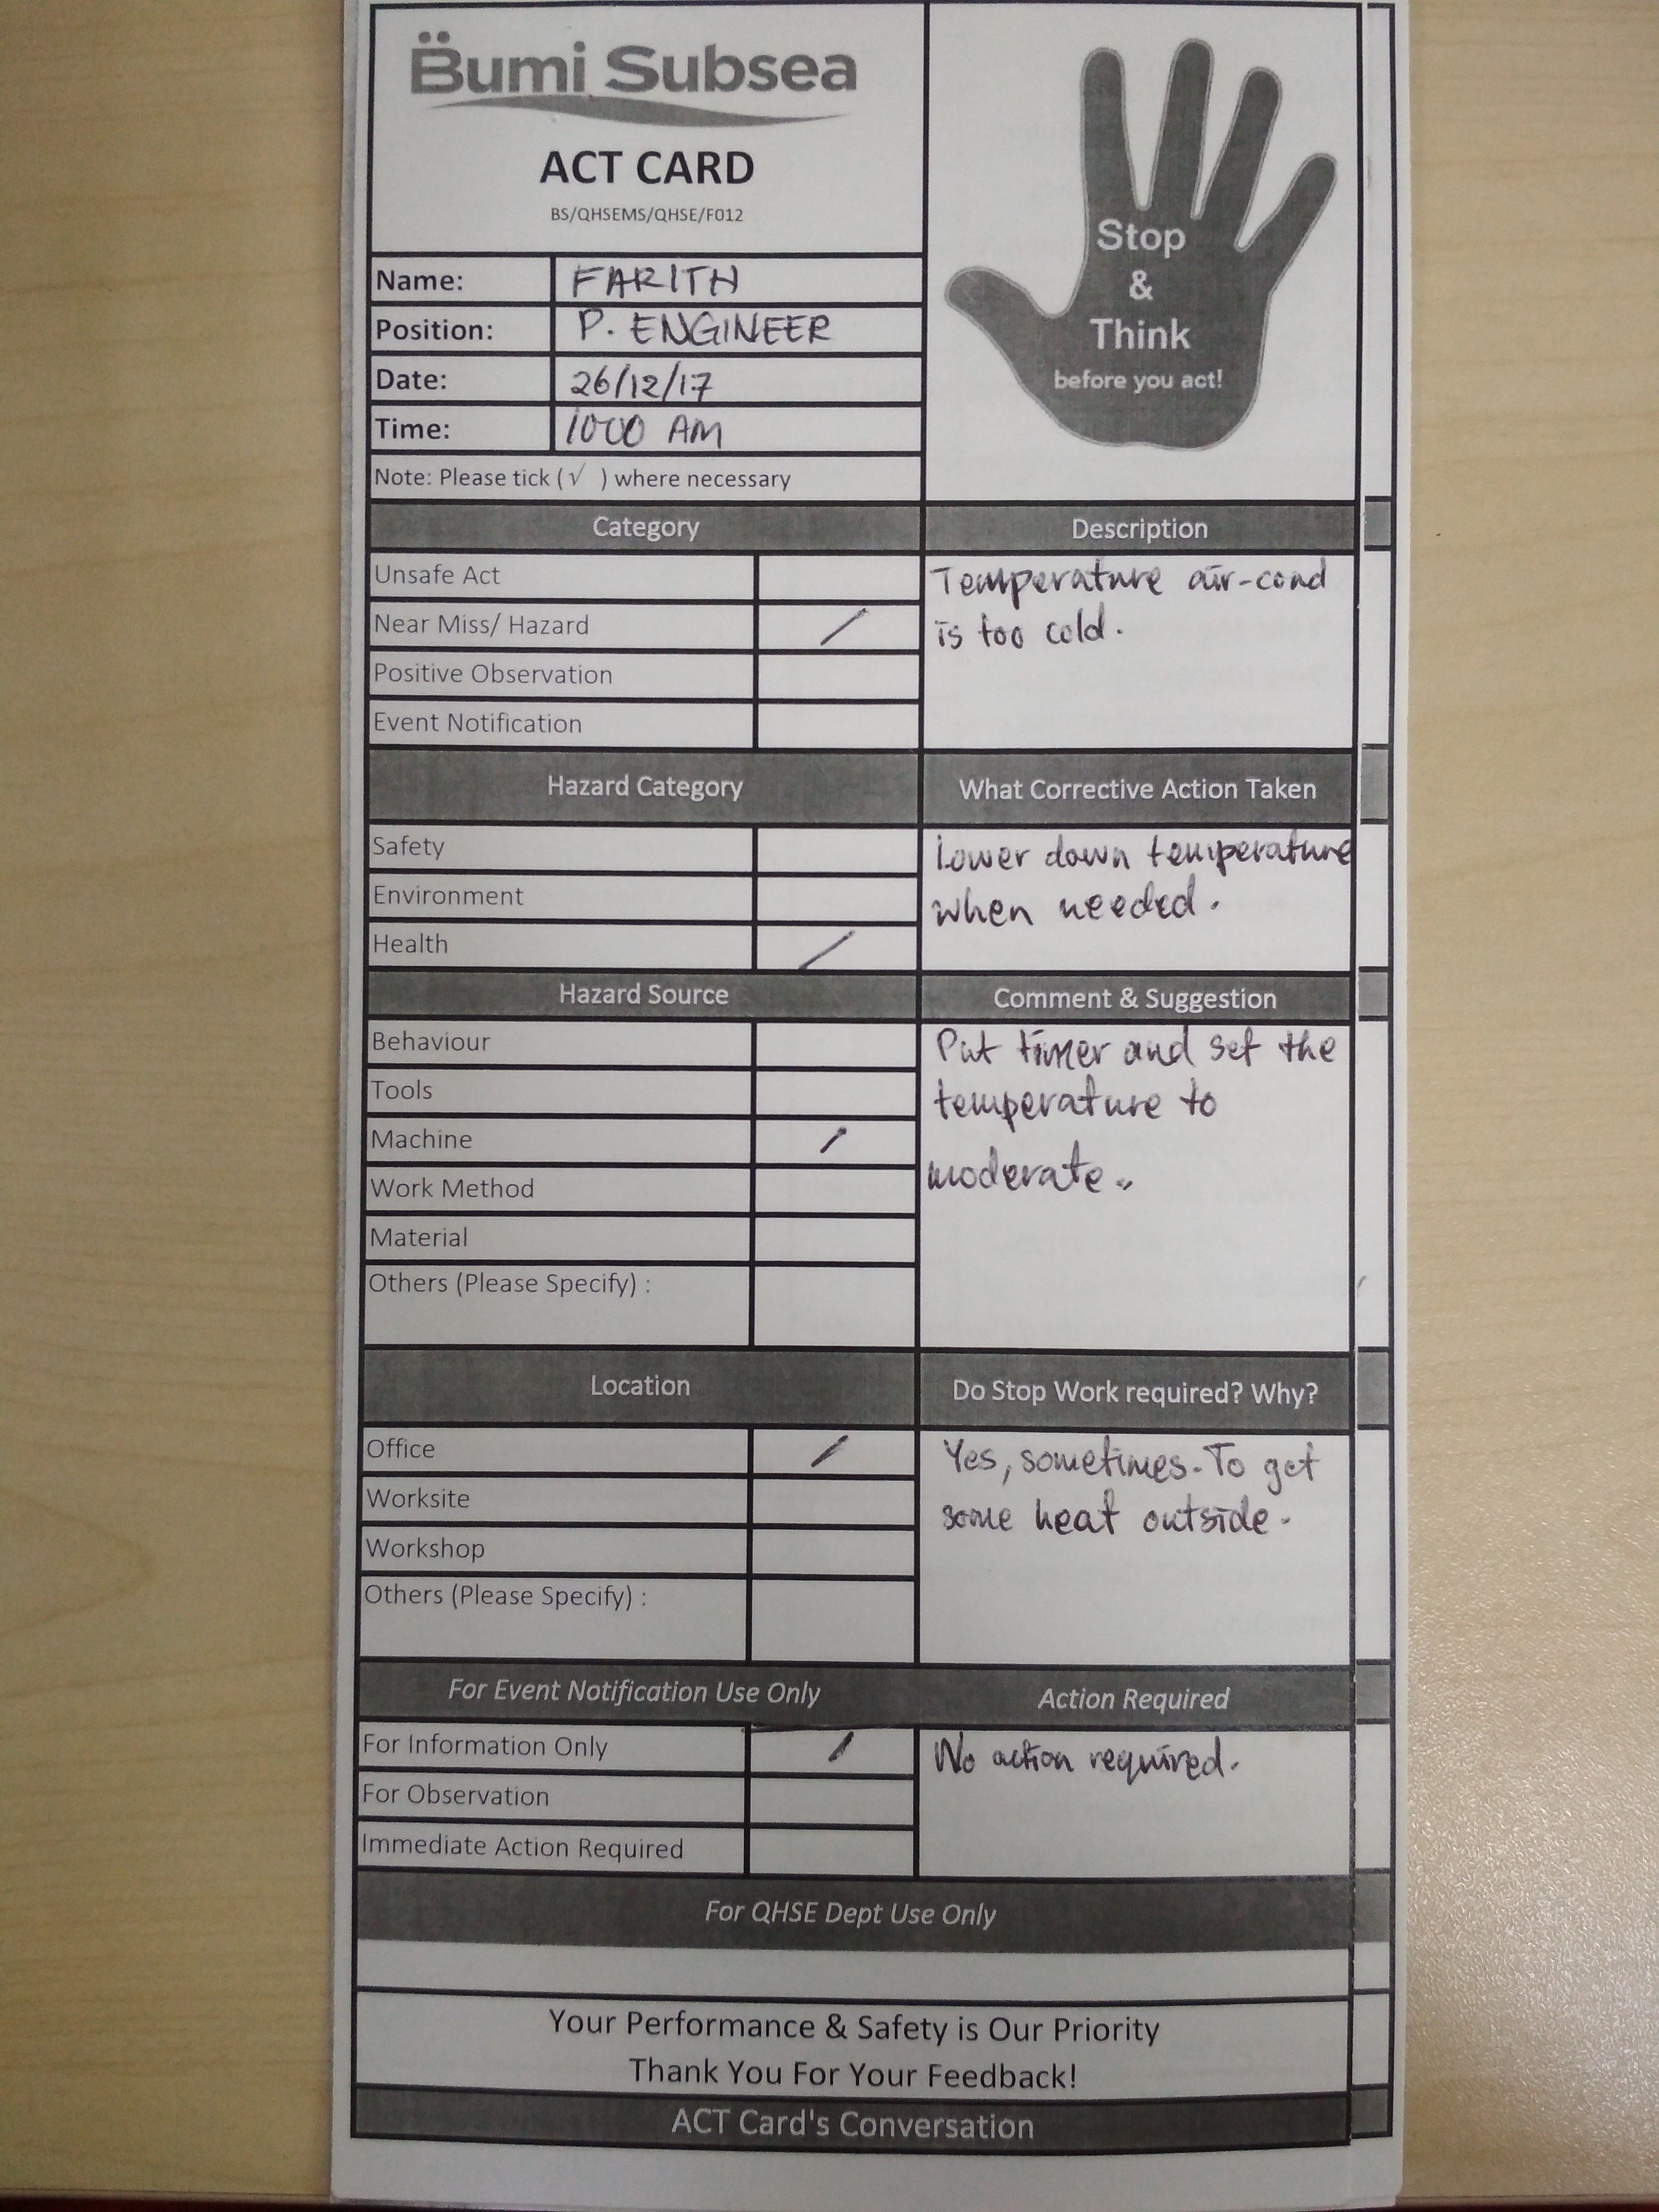 Bumi Subsea
ACT CARD
BS/QHSEMS/QHSE/F012
Stop
&
Think
before you act!
Name: FARITH
Position: P. ENGINEER
Date: 26/12/17
Time: 1000 AM
Note: Please tick (√ ) where necessary
Category
Unsafe Act
Near Miss/ Hazard /
Positive Observation
Event Notification
Description
Temperature air-cond
is too cold.
Hazard Category
Safety
Environment
Health /
What Corrective Action Taken
Lower down temperature
when needed.
Hazard Source
Behaviour
Tools
Machine /
Work Method
Material
Others (Please Specify) :
Comment & Suggestion
Put timer and set the
temperature to
moderate..
Location
Office /
Worksite
Workshop
Others (Please Specify) :
Do Stop Work required? Why?
Yes, sometimes. To get
some heat outside.
For Event Notification Use Only
For Information Only /
For Observation
Immediate Action Required
Action Required
No action required.
For QHSE Dept Use Only
Your Performance & Safety is Our Priority
Thank You For Your Feedback!
ACT Card's Conversation